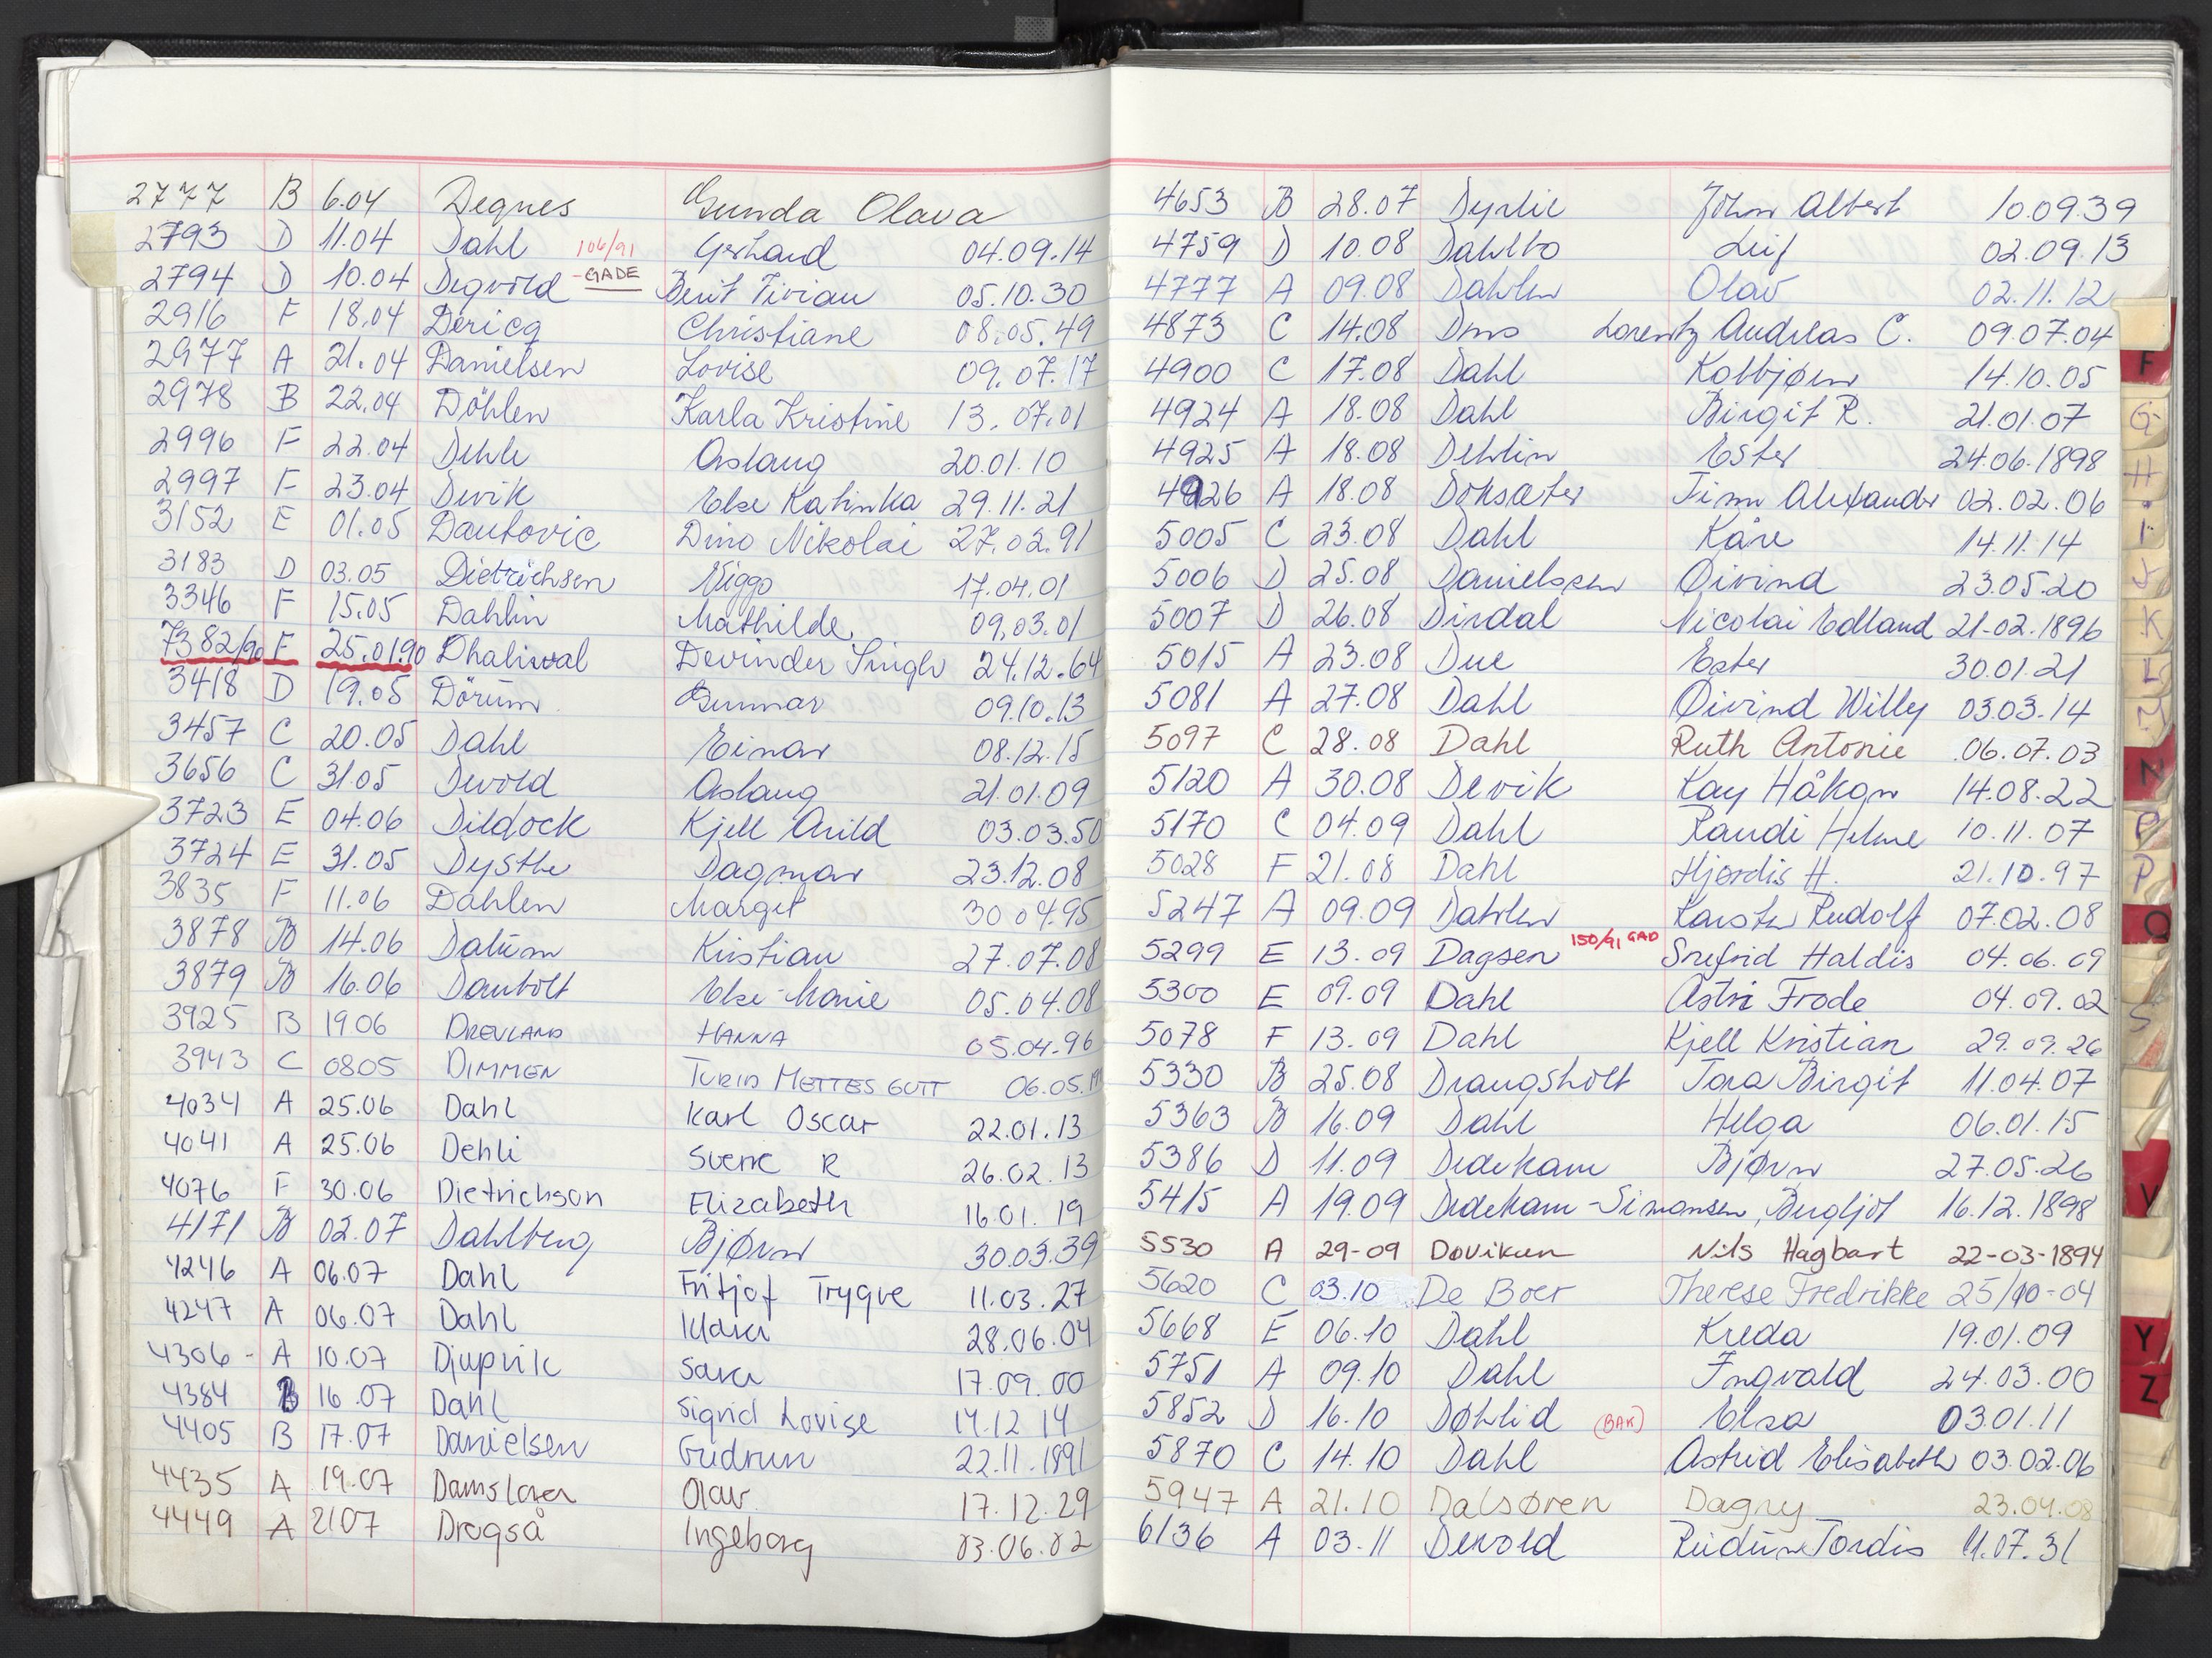 2777 B 6.04 Degnes Gunda Olava
2793 D 11.04 Dahl 106/91 Gerhard 04.09.14
2794 D 10.04 Degvold -GADE Berit Vivian 05.10.30
2916 F 18.04 Dericq Christiane 08.05.49
2977 A 21.04 Danielsen Lovise 09.07.17
2978 B 22.04 Döhlen Karla Kristine 13.07.01
2996 F 22.04 Dehle Aslaug 20.01.10
2997 F 23.04 Devik Else Katinka 29.11.21
3152 E 01.05 Dautovic Dino Nikolai 27.02.91
3183 D 03.05 Dietrichsen Viggo 17.04.01
3346 F 15.05 Dahlin Mathilde 09.03.01
7382/90 F 25.01.90 Dhaliwal Devinder Singh 24.12.64
3418 D 19.05 Dörum Gunnar 09.10.13
3457 C 20.05 Dahl Einar 08.12.15
3656 C 31.05 Devold Aslaug 21.01.09
3723 E 04.06 Dildock Kjell Arild 03.03.50
3724 E 31.05 Dysthe Dagmar 23.12.08
3835 F 11.06 Dahlen Margit 30 04.95
3878 B 14.06 Datum Kristian 27.07.08
3879 B 16.06 Danbolt Else-Marie 05.04.08
3925 B 19 06 DREVLAND HANNA 05.04.96
3943 C 0805 DIMMEN TURID METTES GUTT 06.05.
4034 A 25.06 Dahl Karl Oscar 22.01.13
4041 A 25.06 Dehli Sverre R 26.02.13
4076 F 30.06 Dietrichson Elizabeth 16.01.19
4171 B 02.07 Dahlberg Bjørn 30.03.39
4246 A 06.07 Dahl Fritjof Trygve 11.03.27
4247 A 06.07 Dahl Klara 28.06.04
4306 - A 10.07 Djupvik Sara 17.09.00
4384 B 16.07 Dahl Sigrid Lovise 14.12 14
4405 B 17.07 Danielsen Gudrun 22.11.1891
4435 A 19.07 Damslora Olav 17.12.29
4449 A 2107 Drogså Ingeborg 03.06.02
4653 B 28.07 Dyrlie John Albert 10.09.39
4759 D 10.08 Dahlbo Leif 02.09.13
4777 A 09.08 Dahlen Olav 02.11.12
4873 C 14.08 Dms Lorentz Andreas C. 09.07.04
4900 C 17.08 Dahl Kolbjørn 14.10.05
4924 A 18.08 Dahl Birgit R. 21.01.07
4925 A 18.08 Dehlin Ester 24.06.1898
4926 A 18.08 Doksæter Finn Alexander 02.02.06
5005 C 23.08 Dahl Kåre 14.11.14
5006 D 25.08 Danielssen Øivind 23.05.20
5007 D 26.08 Dirdal Nicolai Edland 21-02.1896
5015 A 23.08 Due Ester 30.01.21
5081 A 27.08 Dahl Øivind Willy 03.03.14
5097 C 28.08 Dahl Ruth Antonie 06.07.03
5120 A 30.08 Devik Kay Håkon 14.08.22
5170 C 04.09 Dahl Randi Helene 10.11.07
5028 F 21.08 Dahl Hjørdis H. 21.10.97
5247 A 09.09 Dahlen Karsten Rudolf 07.02.08
5299 E 13.09 Dagsen 150/91 GAD Snefrid Haldis 04.06.09
5300 E 09.09 Dahl Astri Frode 04.09.02
5078 F 13.09 Dahl Kjell Kristian 29.09.26
5330 B 25.08 Draugsholt Tora Birgit 11.04.07
5363 B 16.09 Dahl Helga 06.01.15
5386 D 11.09 Dedekam Bjørn 27.05.26
5415 A 19.09 Dedekam-Simonsen, Bergljot 16.12.1898
5530 A 29-09 Doviken Nils Hagbart 22-03-1894
5620 C 03.10 De Boer Therese Fredrikke 25/10-04
5668 E 06.10 Dahl Kreda 19.01.09
5751 A 09.10 Dahl Ingvald 24.03.00
5852 D 16.10 Døhlid (BAK) Elsa 03.01.11
5870 C 14.10 Dahl Astrid Elisabeth 03.02.06
5947 A 21.10 Dalsøren Dagny 23.04.08
6136 A 03.11 Devold Reidun Tordis 11.07.31
F
G
H
I
J
K
L
M
N
P
O
S
V
Y
Z